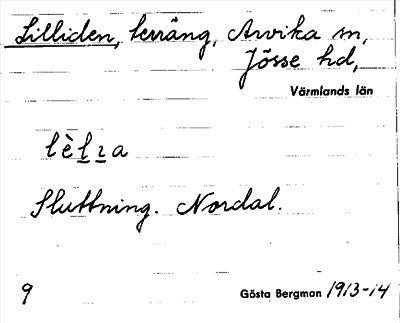 Lilliden, terräng, Arvika sn,
Jösse hd,
Värmlands län
lèlıa
Sluttning. Nordal.
9
Gösta Bergman 1913-14